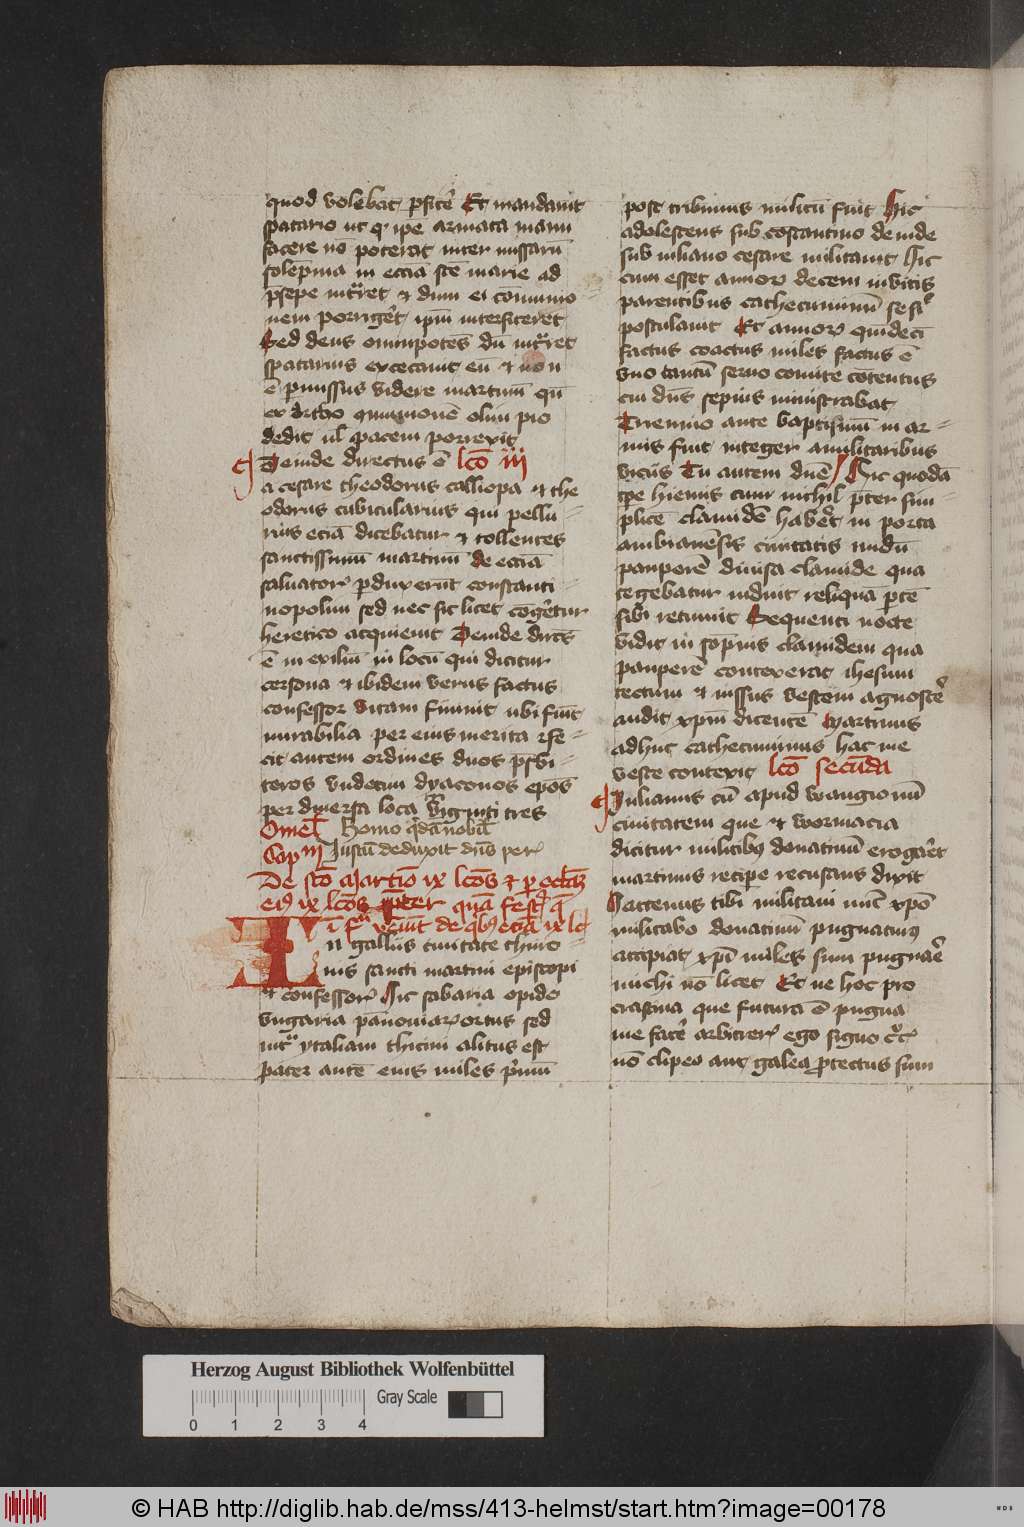 quod volebat ꝑficē Et mandauit
spatario ut qͥ ipe armata manu
facere nō poterat inter missarū
solēpnia in eccīa scē marie ad
p̄sepe intͣret ⁊ dum ei cōmunio
nem porrigēt ipm̄ interficeret
Sed deus omnipotēs dū intͣret
spatarius excecauit eū ⁊ non
ē ꝑmissus videre martinū qn̄
olim pio
dedit ul̄ pacem porrexit
Deinde directus ē lcō iii
a cesare theodorus calliopa ⁊ the
odorus cubicularius qui pellu
rius eciā dicebatur ⁊ tollentes
sanctissimū martinū de eccīa
saluatorꝭ ꝑduxerūt constanti
nopolim sed nec sic licet cogēetur
heretico acquieuit Deinde dircūs
ē in exiliū in locū qui dicitur
cersona ⁊ ibidem verus factus
confessor vitam finiuit ubi fiūt
mirabilia per eius merita
cit autem ordines duos p̄sbi
teros vndecim dyaconos ep̄os
per diuersa loca viginti tres
Omel̄ Homo qͥdā nobil̄
Cap m Iustū deduxit dn̄s per
De scō Martīo ix lcōs ⁊ ꝑ octauā
eiꝰ ix lcōs p̄ter
In gallijs ciuitate thuro
nis sancti martini episcopi
⁊ confessorꝭ Hic sabaria opido
vngaria pānoniarꝝ ortus sed
intͣ ytaliam thicini alitus est
pater autē eius miles pͥmū
post tribunus militū fuit Hic
adolescens sub cōstantino deinde
sub iuliano cesare militauit Hic
cum esset annorꝝ decem inuitis
parentibus cathecuminū se fiͥ
postulauit Et annorꝝ quīdecī
factus coactus miles factus ē
vno tantū seruo comite cōtentus
cui dn̄s sepius ministrabat
Triennio ante baptismū in ar
mis fuit integer a militaribus
vicijs Tu autem dn̄e Hic quodā
tp̄e hiemis cum nichil p̄ter sim
plicē clamidē habēt in porta
ambianēsis ciuitatis nudū
pauperē diuisa clamide qua
tegebatur induit reliquā ꝑtē
sibi retinuit Sequenti nocte
vidit in sop̄nis clamidem qua
pauperē contexerat ihesum
tectum ⁊ iussus vestem agnoscē
audit xpm̄ dicentē Martinus
adhuc cathecuminus hac me
veste contexit lcō secūda
Iulianus cū apud wangionū
ciuitatem que ⁊ wormacia
dicitur militibꝰ donatiuū erogāet
martinus recipe recusans dixit
Hactenus tibi militaui mō xpō
militabo donatiuū pugnaturꝰ
accipiat xpī miles sum pugnāe
michi nō licet Et ne hoc pro
crastina que futura ē pugna
me facē arbitrerꝭ ego signo crͨꝭ
nō clipeo aut galea ꝓtectus sum
Herzog August Bibliothek Wolfenbüttel
Gray Scale
0 1 2 3 4
© HAB http://diglib.hab.de/mss/413-helmst/start.htm?image=00178
WDB